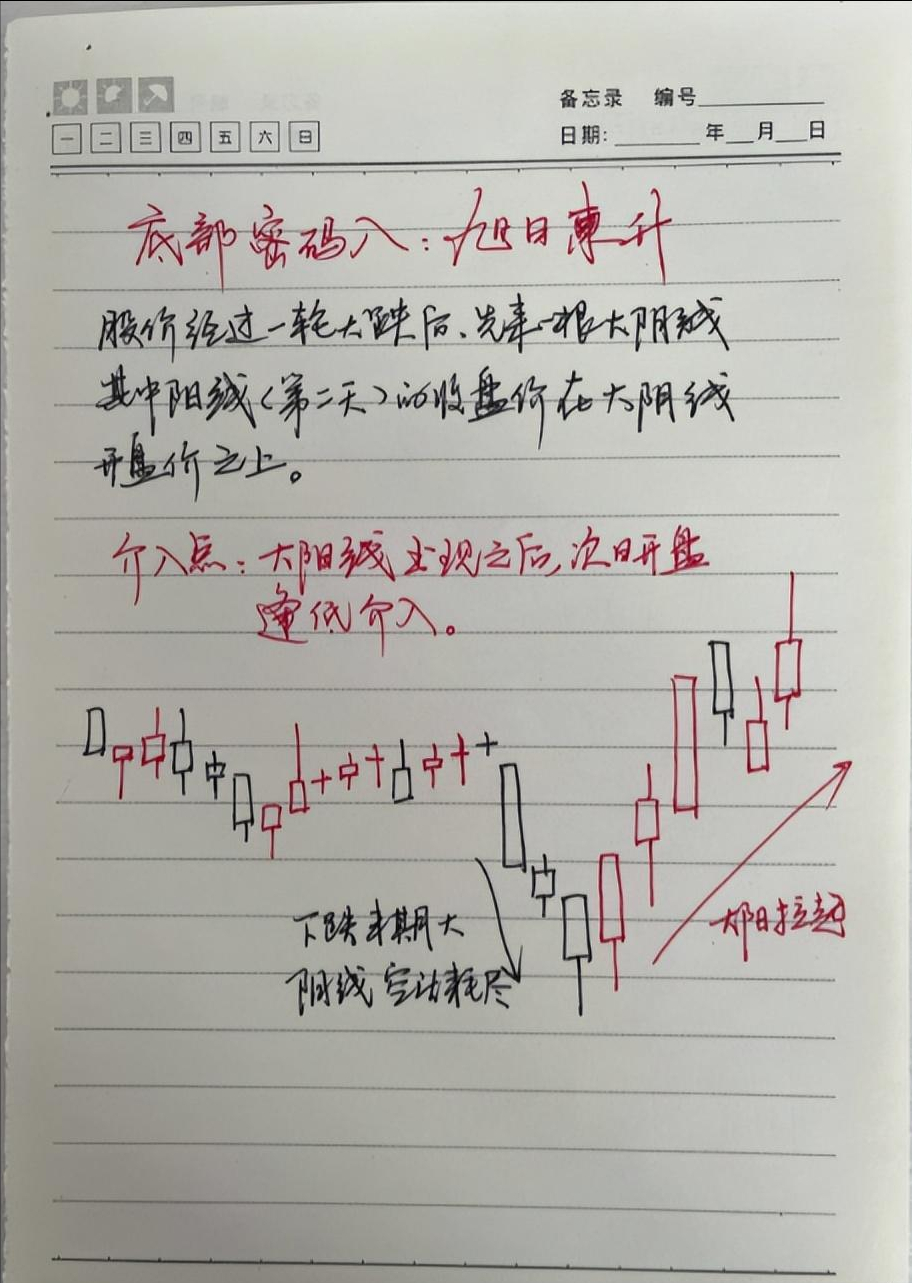 备忘录 编号
一 二 三 四 五 六 日
日期: 年 月 日
底部密码八：旭日東升
股价经过一轮大跌后、先来一根大阴线
其中阳线（第二天）的收盘价在大阴线
开盘价之上。
介入点：大阳线出现之后，次日开盘
逢低介入。
下跌末期大
阴线 空沽耗尽
大阳拉起